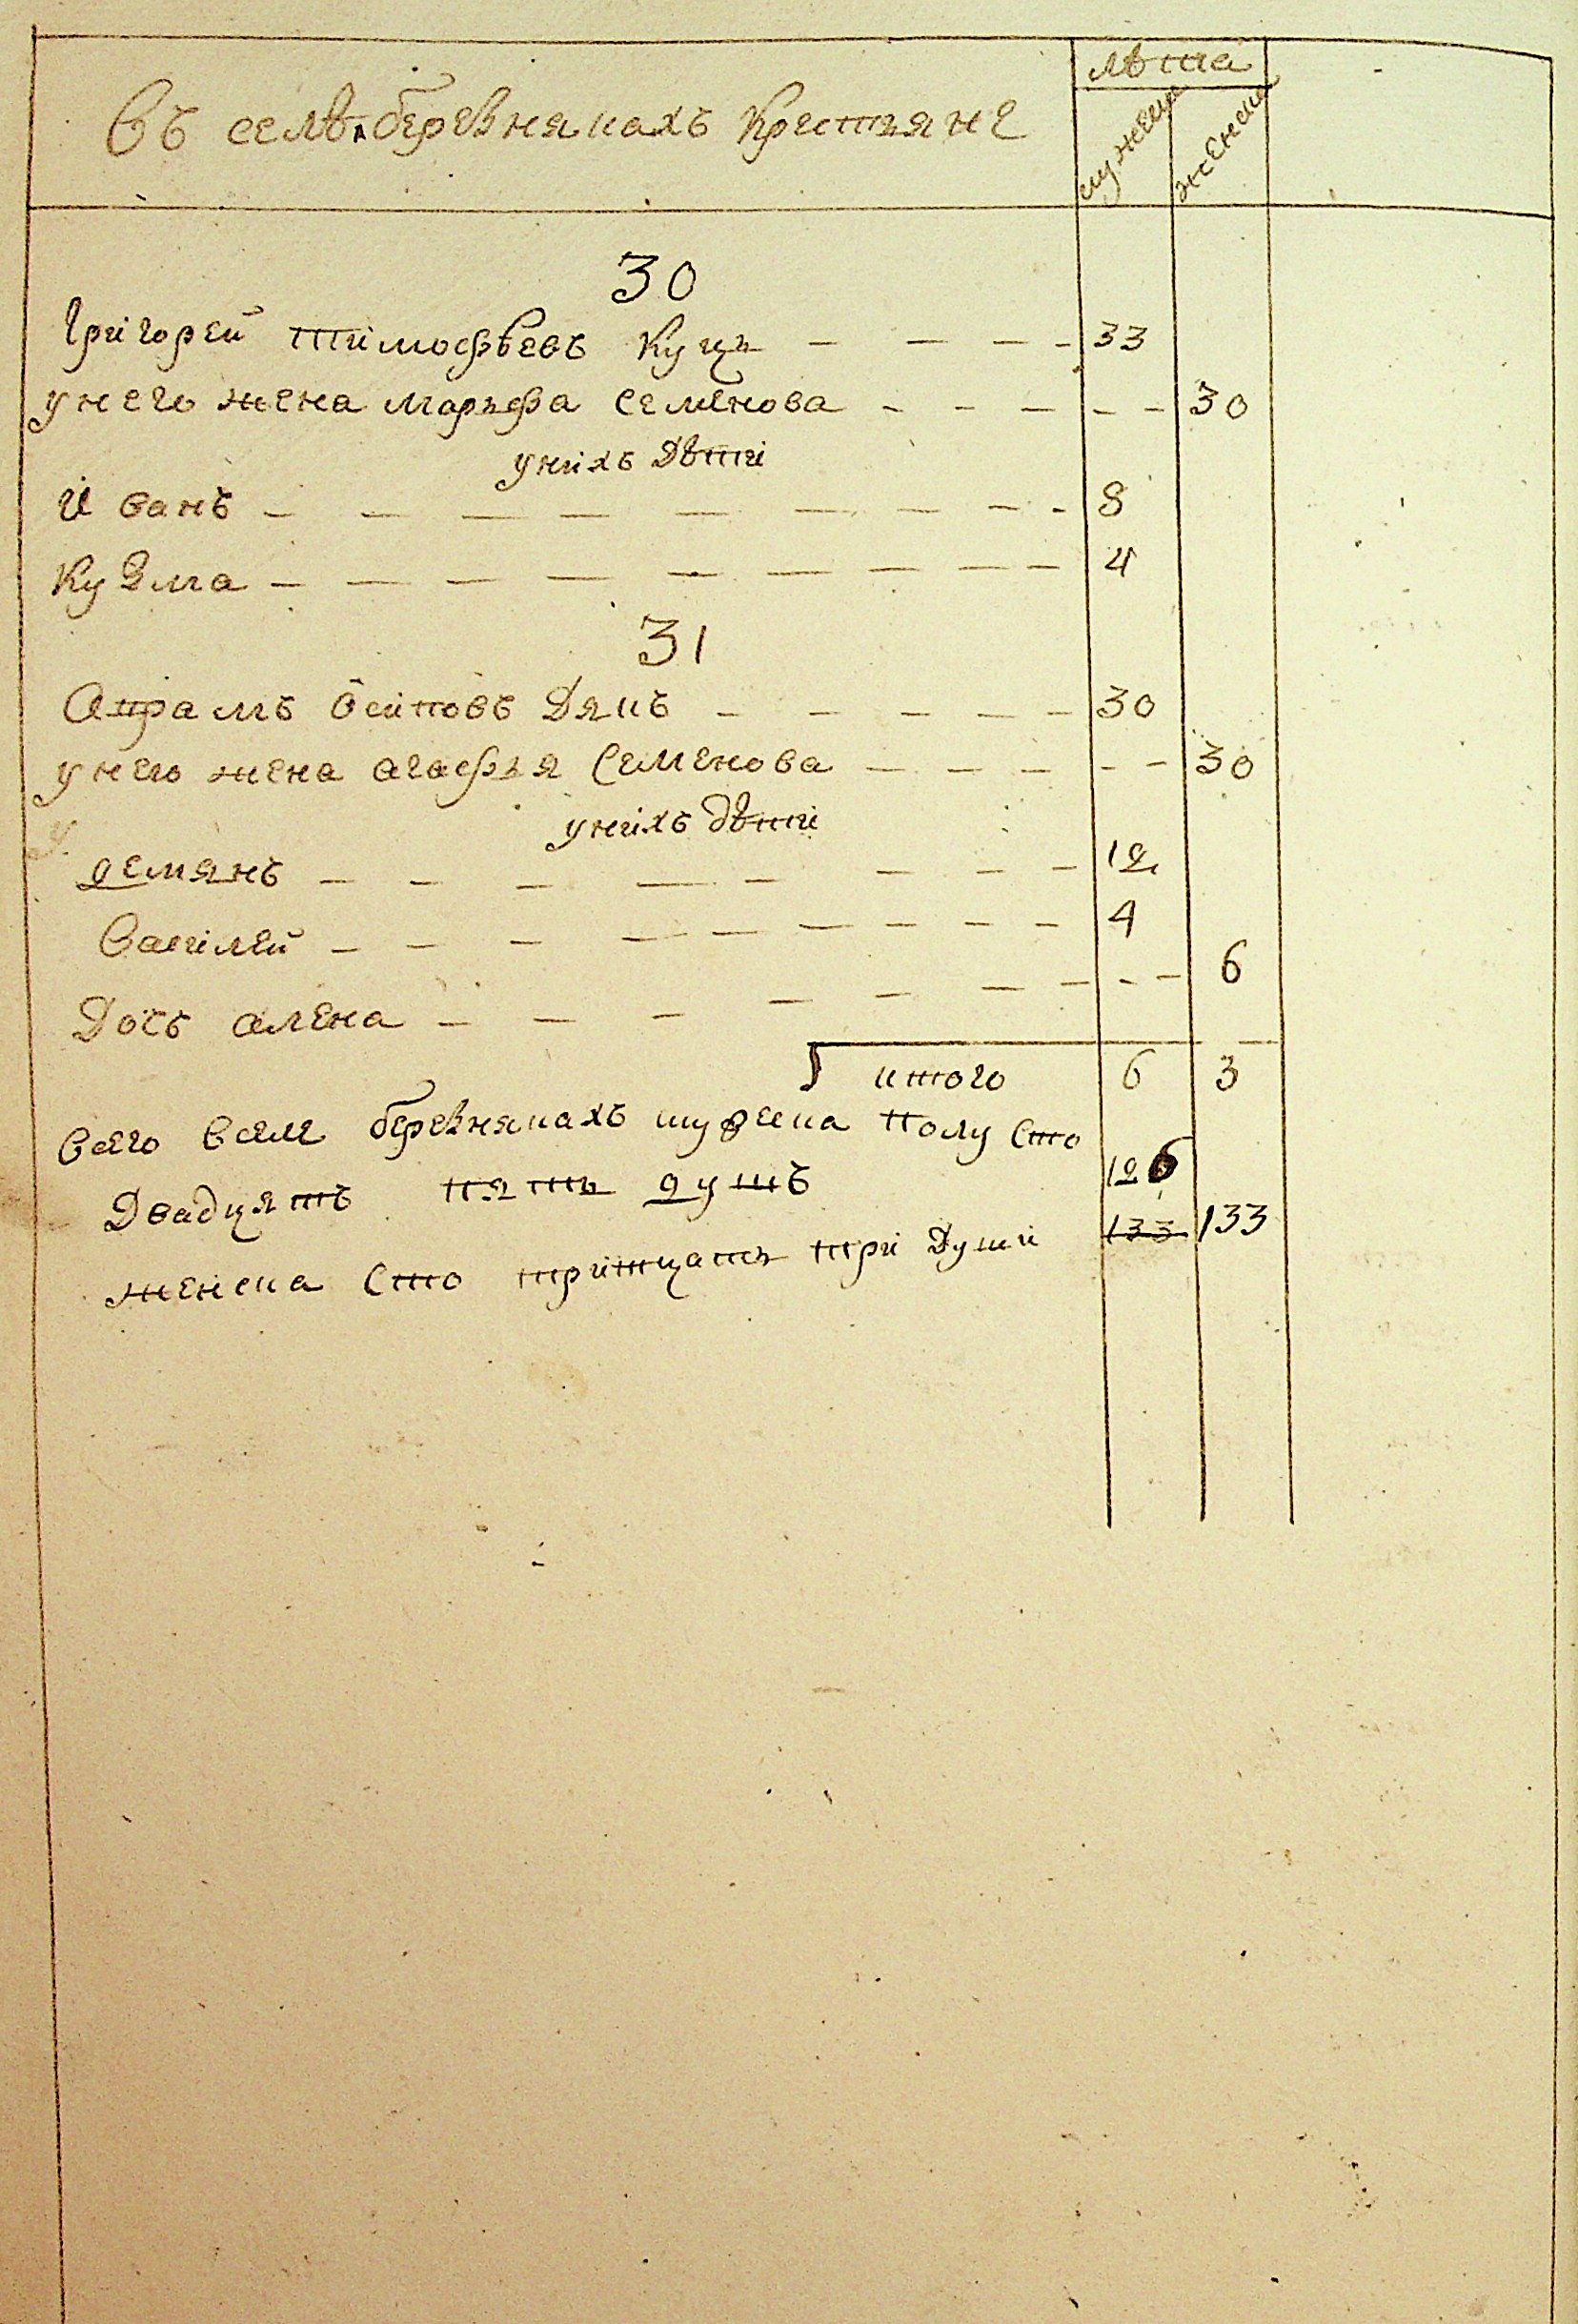 Въ селѣ беревнякахъ Крестьяне
лѣта
мужеска
женска
30
Григорей Тимофѣевъ Куць 33
у него жена Марьфа Семенова 30
у нихъ дѣти
Иванъ 8
Кузма 4
31
Анрамъ Осиповъ Дякъ 30
у него жена агафья Семенова 30
у нихъ дѣти
демянъ 12
Василей 4
Дочъ алена 6
итого 6 3
Всего Вселе беревнякахъ мужеска полу Сто
Двадцятъ пять душъ 126
женска Сто тритцать три Души 133 133